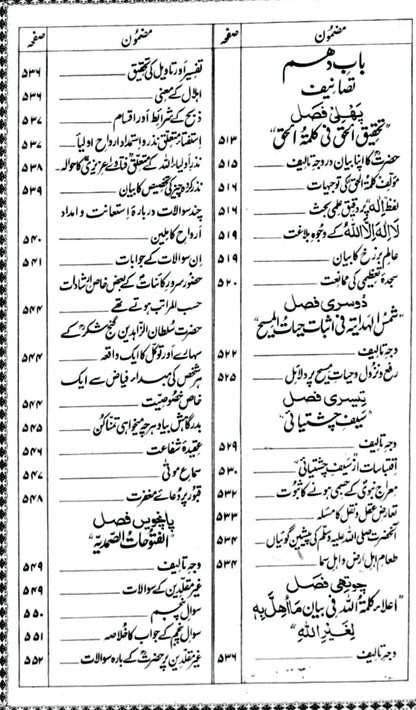 مضمون صفحہ
باب دہم
تصانیف
پہلی فصل
"تحقیق الحق فی کلمۃ الحق" ۵۱۳
حضرتؒ کا اپنا بیان در وجہ تالیف ۵۱۵
مؤلف کلمۃ الحق کی توجیہات ۵۱۶
لفظ الٰہ پر دقیق علمی بحث ۵۱۶
لا الٰہ الا اللہ کے وجوہ بلاغت ۵۱۹
عالم برزخ کا بیان ۵۱۹
سجدۂ تعظیمی کی ممانعت ۵۲۰
دوسری فصل
"شمس الہدایۃ فی اثبات حیات المسیح"
وجہ تالیف ۵۲۲
رفع و نزول و حیات مسیح پر دلائل ۵۲۵
تیسری فصل
"سیف چشتیائی"
وجہ تالیف ۵۲۹
اقتباسات از سیف چشتیائی ۵۳۰
معراج نبوی کے جسمی ہونے کا ثبوت ۵۳۲
تعارض عقل و نقل کا مسئلہ ۵۳۳
آنحضرت صلی اللہ علیہ وسلم کی پیشین گوئیاں ۵۳۴
طعام اہل ارض و اہل سما ۵۳۴
چوتھی فصل
"اعلاء کلمۃ اللہ فی بیان ما اُھلّ بہٖ
لغیر اللہ"
وجہ تالیف ۵۳۶
مضمون صفحہ
تفسیر اور تاویل کی تحقیق ۵۳۶
اہلال کے معنی ۵۳۶
ذبح کے شرائط اور اقسام ۵۳۷
استفتا متعلق نذر و استمداد ارواح اولیاء ۵۳۷
نذر اولیاء اللہ کے متعلق فتاوے عزیزی کا حوالہ ۵۳۸
نذر کردہ چیز کی تخصیص کا بیان ۵۳۹
چند سوالات دربارۂ استعانت و امداد
ارواح کاملین ۵۴۰
ان سوالات کے جوابات ۵۴۱
حضور سرور کائنات کے بعض خاص ارشادات
حسب المراتب ہوتے تھے ۵۴۴
حضرت سلطان الزاہدین گنج شکرؒ کے
سہارے اور توکل کا ایک واقعہ ۵۴۴
ہر شخص کی مبداء فیاض سے ایک
خاص خصوصیت ۵۴۴
بدرگاہش بیا و ہرچہ میخواہی تمنا کن ۵۴۵
عقیدۂ شفاعت ۵۴۶
سماع موتیٰ ۵۴۷
قبور پر دُعائے مغفرت ۵۴۸
پانچویں فصل
"الفتوحات الصمدیہ"
وجہ تالیف ۵۴۹
غیر مقلدین کے سوالات ۵۴۹
سوال پنجم ۵۵۰
سوال پنجم کے جواب کا خلاصہ ۵۵۱
غیر مقلدین پر حضرتؒ کے بارہ سوالات ۵۵۲